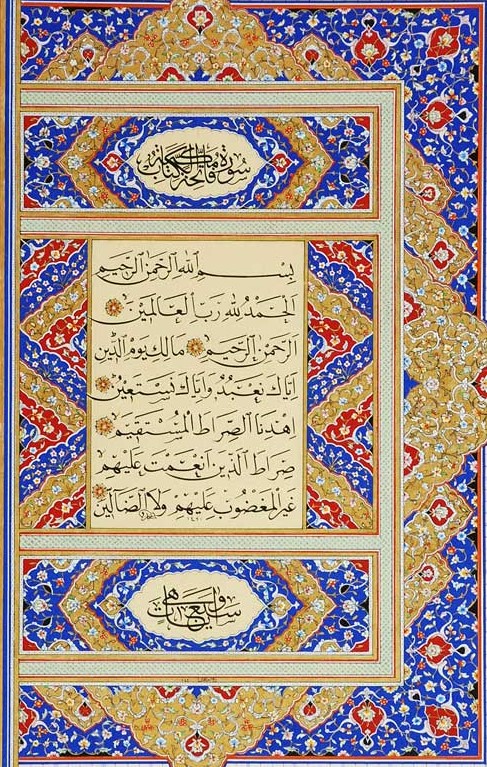 سورة فاتحة الكتاب مكية
بِسْمِ اللهِ الرَّحْمٰنِ الرَّحِيمِ
اَلْحَمْدُ لِلّٰهِ رَبِّ الْعَالَمِينَ
اَلرَّحْمٰنِ الرَّحِيمِ مَالِكِ يَوْمِ الدِّينِ
اِيَّاكَ نَعْبُدُ وَاِيَّاكَ نَسْتَعِينُ
اِهْدِنَا الصِّرَاطَ الْمُسْتَقِيمَ
صِرَاطَ الَّذِينَ اَنْعَمْتَ عَلَيْهِمْ
غَيْرِ الْمَغْضُوبِ عَلَيْهِمْ وَلَا الضَّالِّينَ
وهي سبع آيات